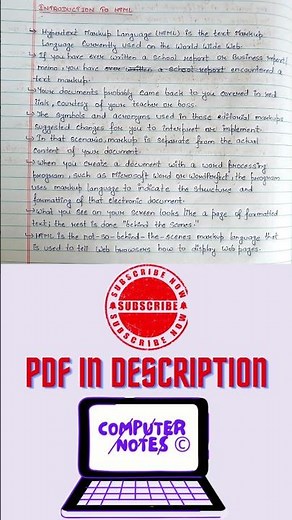 INTRODUCTION TO HTML
↳ Hypertext Markup Language (HTML) is the text Markup
Language currently used on the World Wide Web.
↳ If you have ever written a School report or Business report/
memo, you have ever written a School report encountered a
text markup.
↳ Your documents probably came back to you covered in red
ink, courtsy of your teacher or boss.
↳ The symbols and acronyms used in those editorial markups
suggested changes for you to interpret or implement.
↳ In that scenario, markup is separate from the actual
content of your document.
↳ When you create a document with a word processing
program, such as Microsoft Word or WordPerfect, the program
uses markup language to indicate the structure and
formatting of that electronic document.
↳ What you see on your screen looks like a page of formatted
text; the rest is done "behind the scenes."
↳ HTML is the not-so-behind-the-scenes markup language that
is used to tell Web browsers how to display Web pages.
SUBSCRIBE NOW
SUBSCRIBE
SUBSCRIBE NOW
PDF IN DESCRIPTION
COMPUTER
NOTES ©